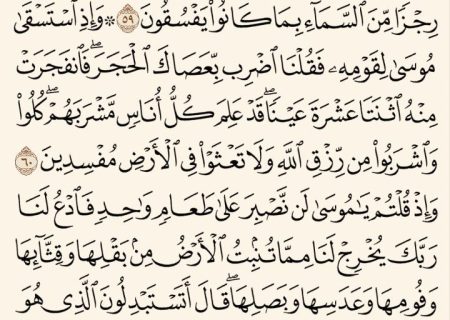 رِجْزًا مِّنَ السَّمَآءِ بِمَا كَانُوا۟ يَفْسُقُونَ ٥٩ ۞ وَإِذِ اسْتَسْقَىٰ
مُوسَىٰ لِقَوْمِهِۦ فَقُلْنَا اضْرِب بِّعَصَاكَ الْحَجَرَ ۖ فَانفَجَرَتْ
مِنْهُ اثْنَتَا عَشْرَةَ عَيْنًا ۖ قَدْ عَلِمَ كُلُّ أُنَاسٍ مَّشْرَبَهُمْ ۖ كُلُوا۟
وَاشْرَبُوا۟ مِن رِّزْقِ اللَّهِ وَلَا تَعْثَوْا۟ فِى الْأَرْضِ مُفْسِدِينَ ٦٠
وَإِذْ قُلْتُمْ يَٰمُوسَىٰ لَن نَّصْبِرَ عَلَىٰ طَعَامٍ وَٰحِدٍ فَادْعُ لَنَا
رَبَّكَ يُخْرِجْ لَنَا مِمَّا تُنۢبِتُ الْأَرْضُ مِنۢ بَقْلِهَا وَقِثَّآئِهَا
وَفُومِهَا وَعَدَسِهَا وَبَصَلِهَا ۖ قَالَ أَتَسْتَبْدِلُونَ الَّذِى هُوَ